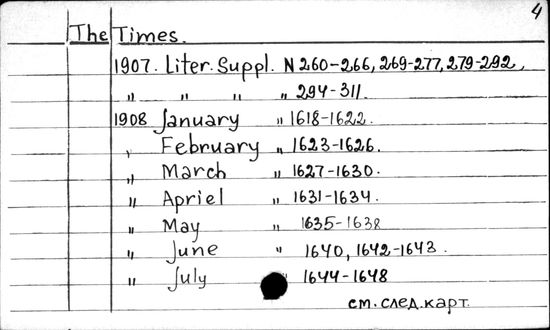 4
The Times.
1907. Liter. Suppl. N 260-266, 269-277, 279-292,
" " " " 294-311.
1908 January " 1618-1622.
" February " 1623-1626.
" March " 1627-1630.
" Apriel " 1631-1634.
" May " 1635-1638
" June " 1640, 1642-1643.
" July " 1644-1648
см. след. карт.